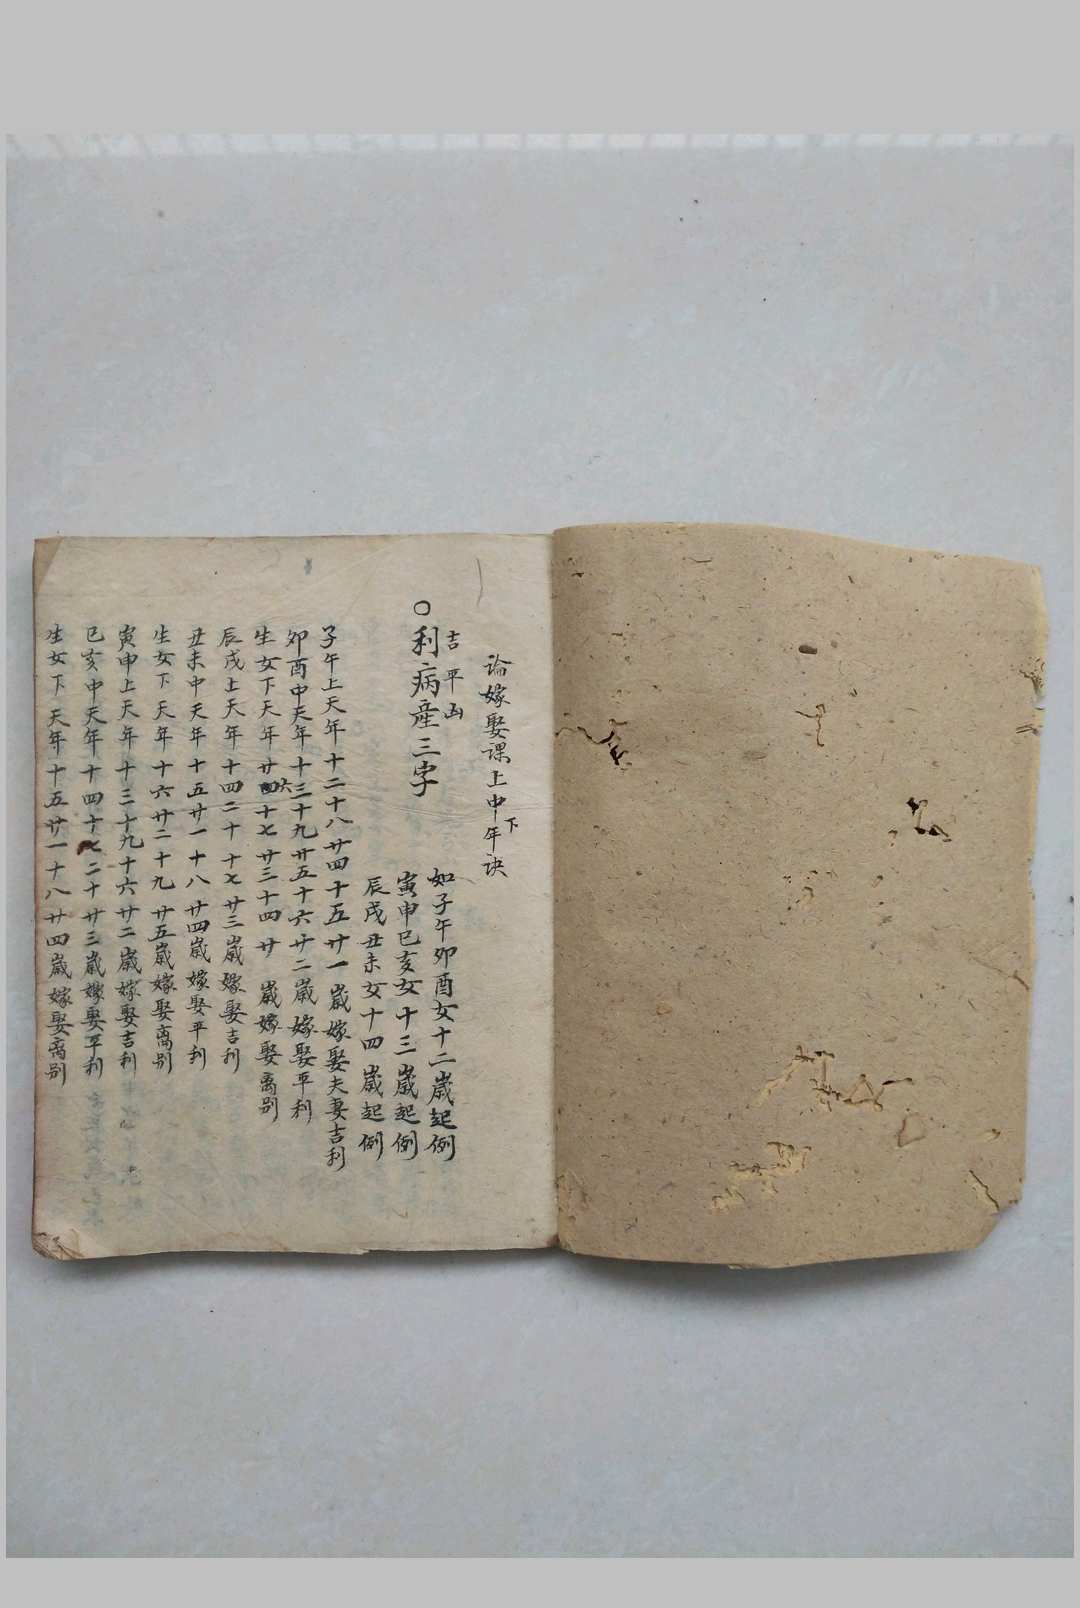 論嫁娶課上中下年訣
吉平凶
○利病產三字
如子午卯酉女十二歲起例
寅申巳亥女十三歲起例
辰戌丑未女十四歲起例
子午上天年十二十八廿四十五廿一歲嫁娶夫妻吉利
卯酉中天年十三十九廿五十六廿二歲嫁娶平利
生女下天年廿六十七廿三十四廿歲嫁娶离别
辰戌上天年十四二十十七廿三歲嫁娶吉利
丑未中天年十五廿一十八廿四歲嫁娶平利
生女下天年十六廿二十九廿五歲嫁娶离别
寅申上天年十三十九十六廿二歲嫁娶吉利
巳亥中天年十四十七二十廿三歲嫁娶平利
生女下天年十五廿一十八廿四歲嫁娶离别